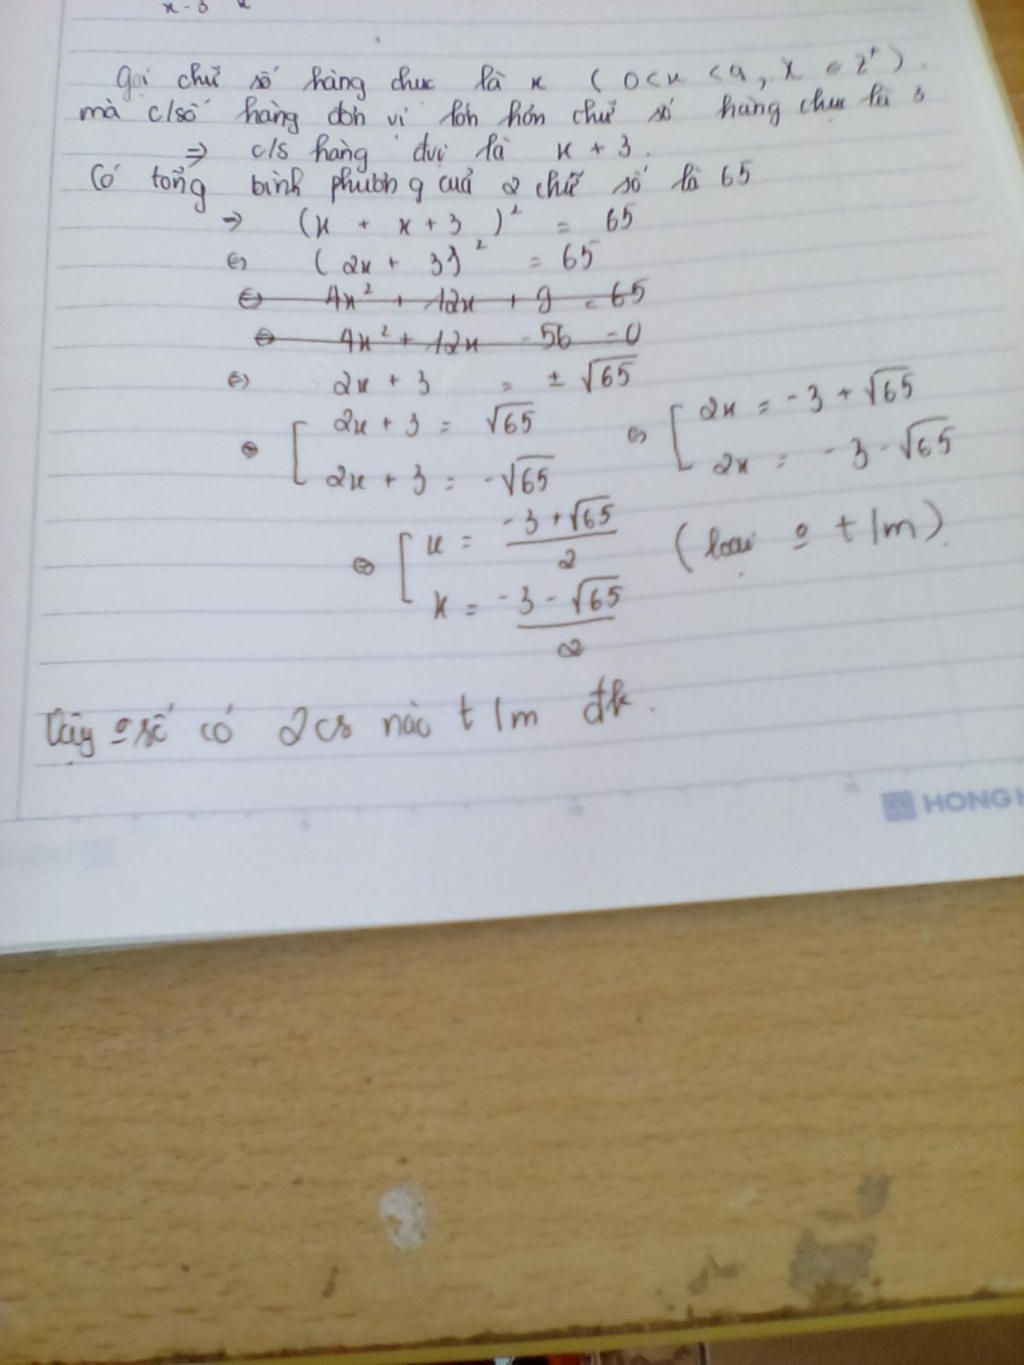 x - 3 x
Gọi chữ số hàng chục là x ( 0 < x < 9, x ∈ Z⁺ ).
mà c/số hàng đơn vị lớn hơn chữ số hàng chục là 3
⇒ c/s hàng đvị là x + 3.
Có tổng bình phương của 2 chữ số là 65
⇒ ( x + x + 3 )² = 65
⇔ ( 2x + 3 )² = 65
⇔ 4x² + 12x + 9 = 65
⇔ 4x² + 12x - 56 = 0
⇔ 2x + 3 = ± √65
⇔ [ 2x + 3 = √65 ⇔ [ 2x = -3 + √65
2x + 3 = -√65 2x = -3 - √65
⇔ [ x = (-3 + √65)/2 ( loại o t/m )
x = (-3 - √65)/2
Vậy o số có 2cs nào t/m đk.
HONG H